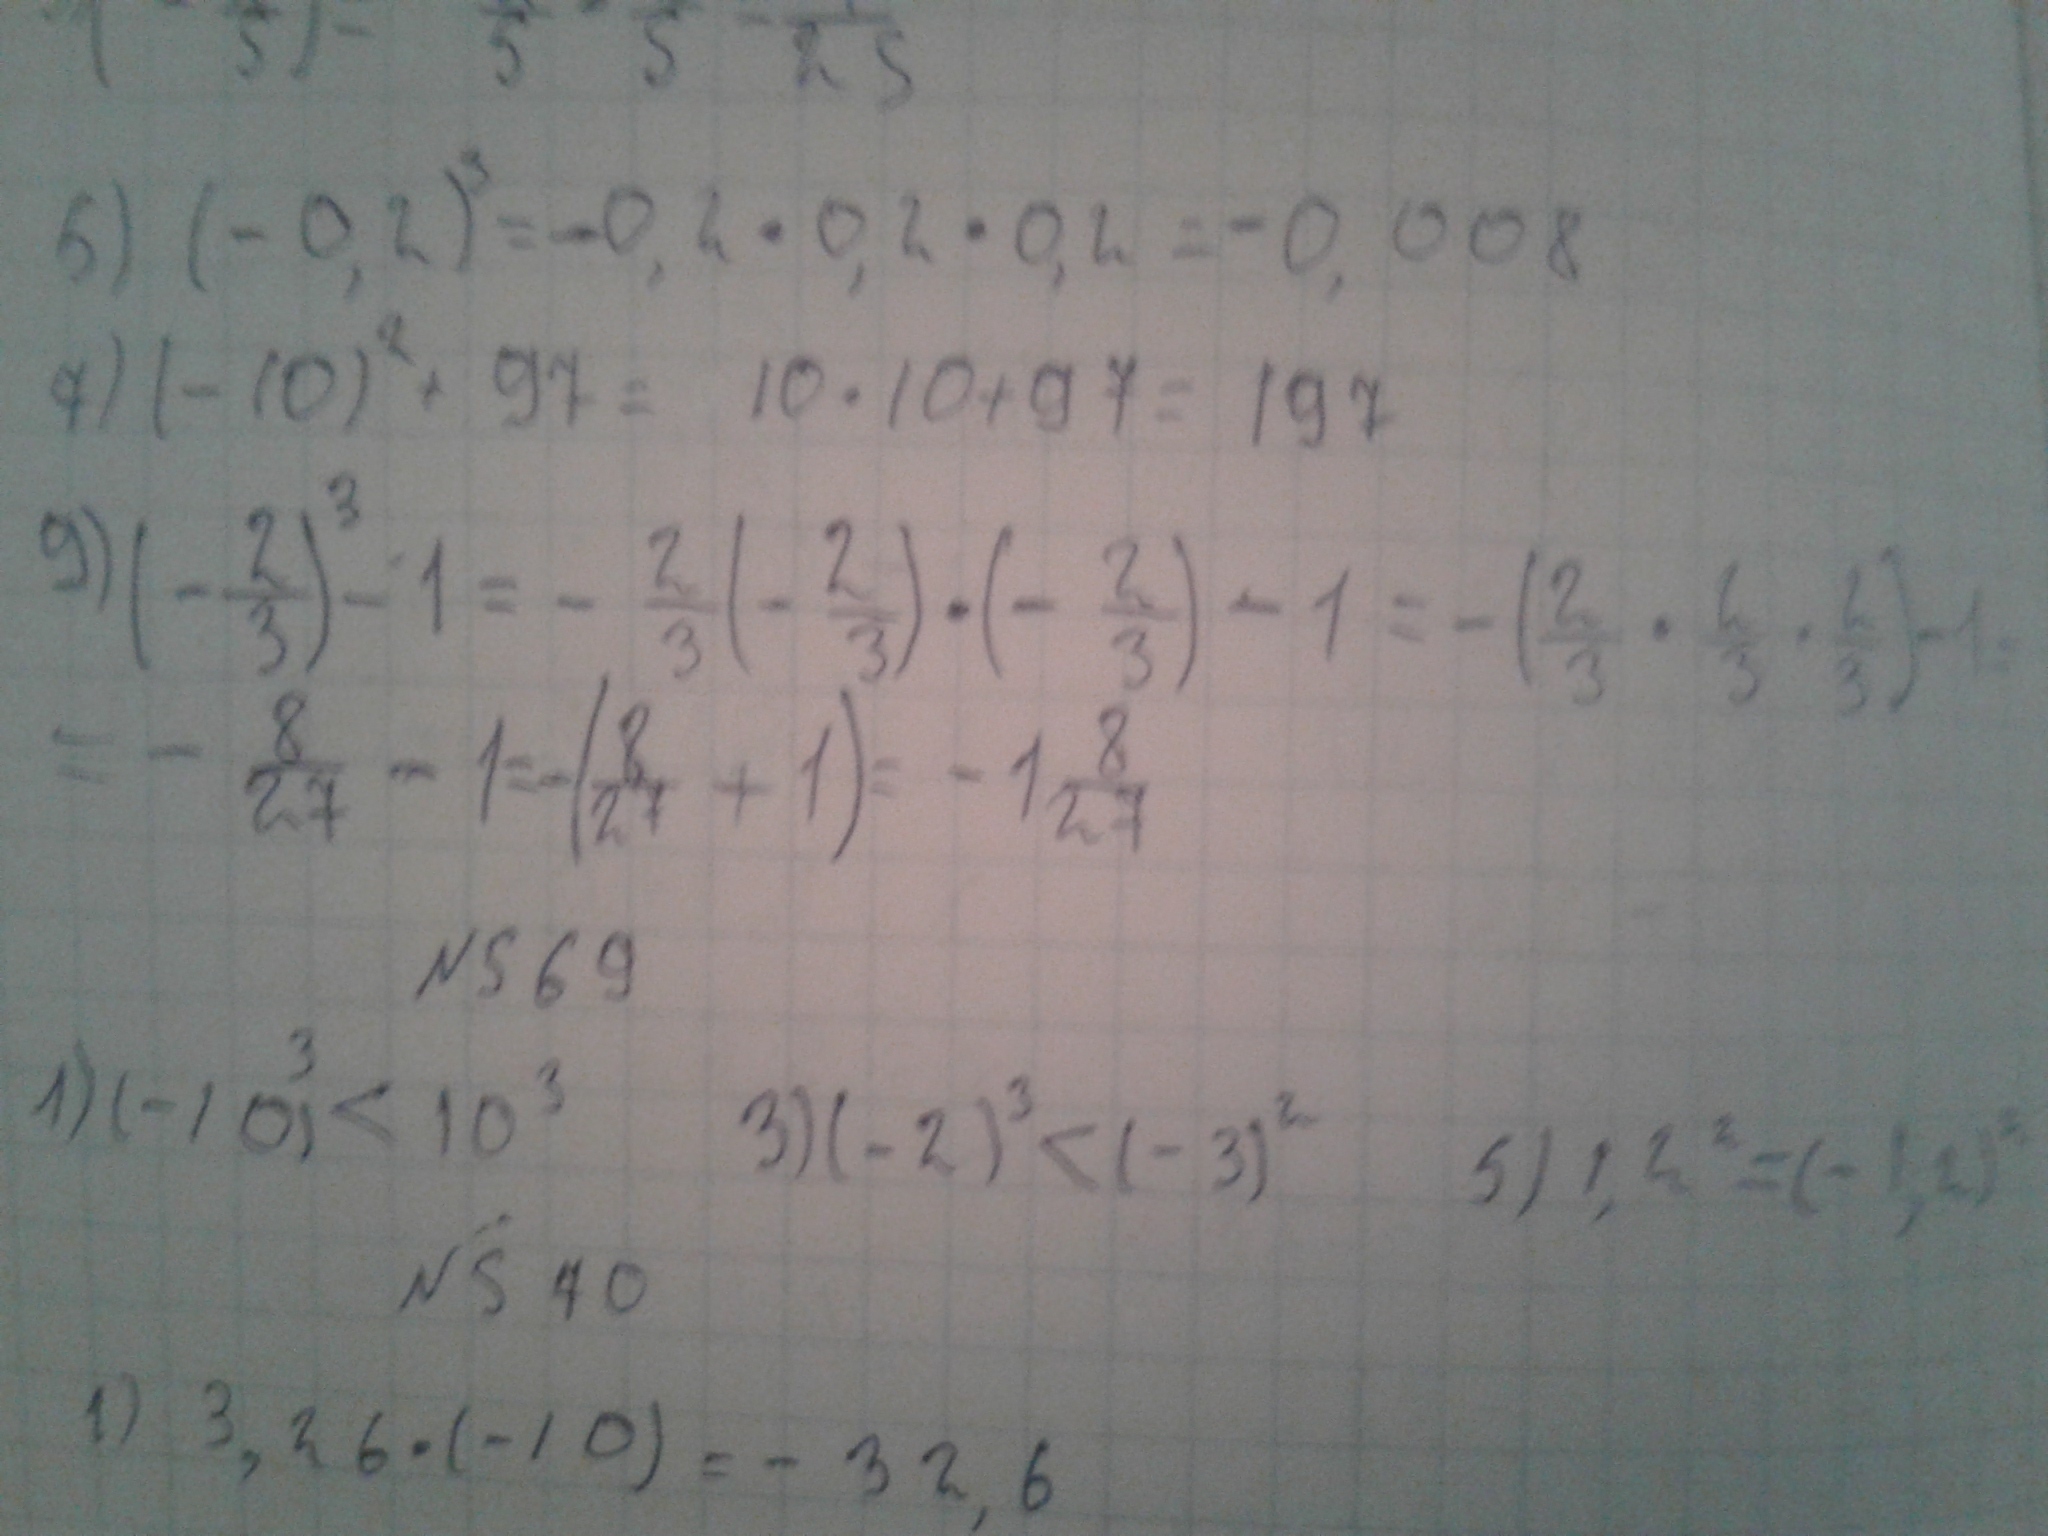 5) (-0,2)³ = -0,2 · 0,2 · 0,2 = -0,008
7) (-10)² + 97 = 10 · 10 + 97 = 197
9) (-2/3)³ - 1 = - 2/3 (- 2/3) · (- 2/3) - 1 = - (2/3 · 2/3 · 2/3) - 1 =
= - 8/27 - 1 = - (8/27 + 1) = - 1 8/27
N569
1) (-10)³ < 10³ 3) (-2)³ < (-3)² 5) 1,2² = (-1,2)²
N570
1) 3,26 · (-10) = - 32,6